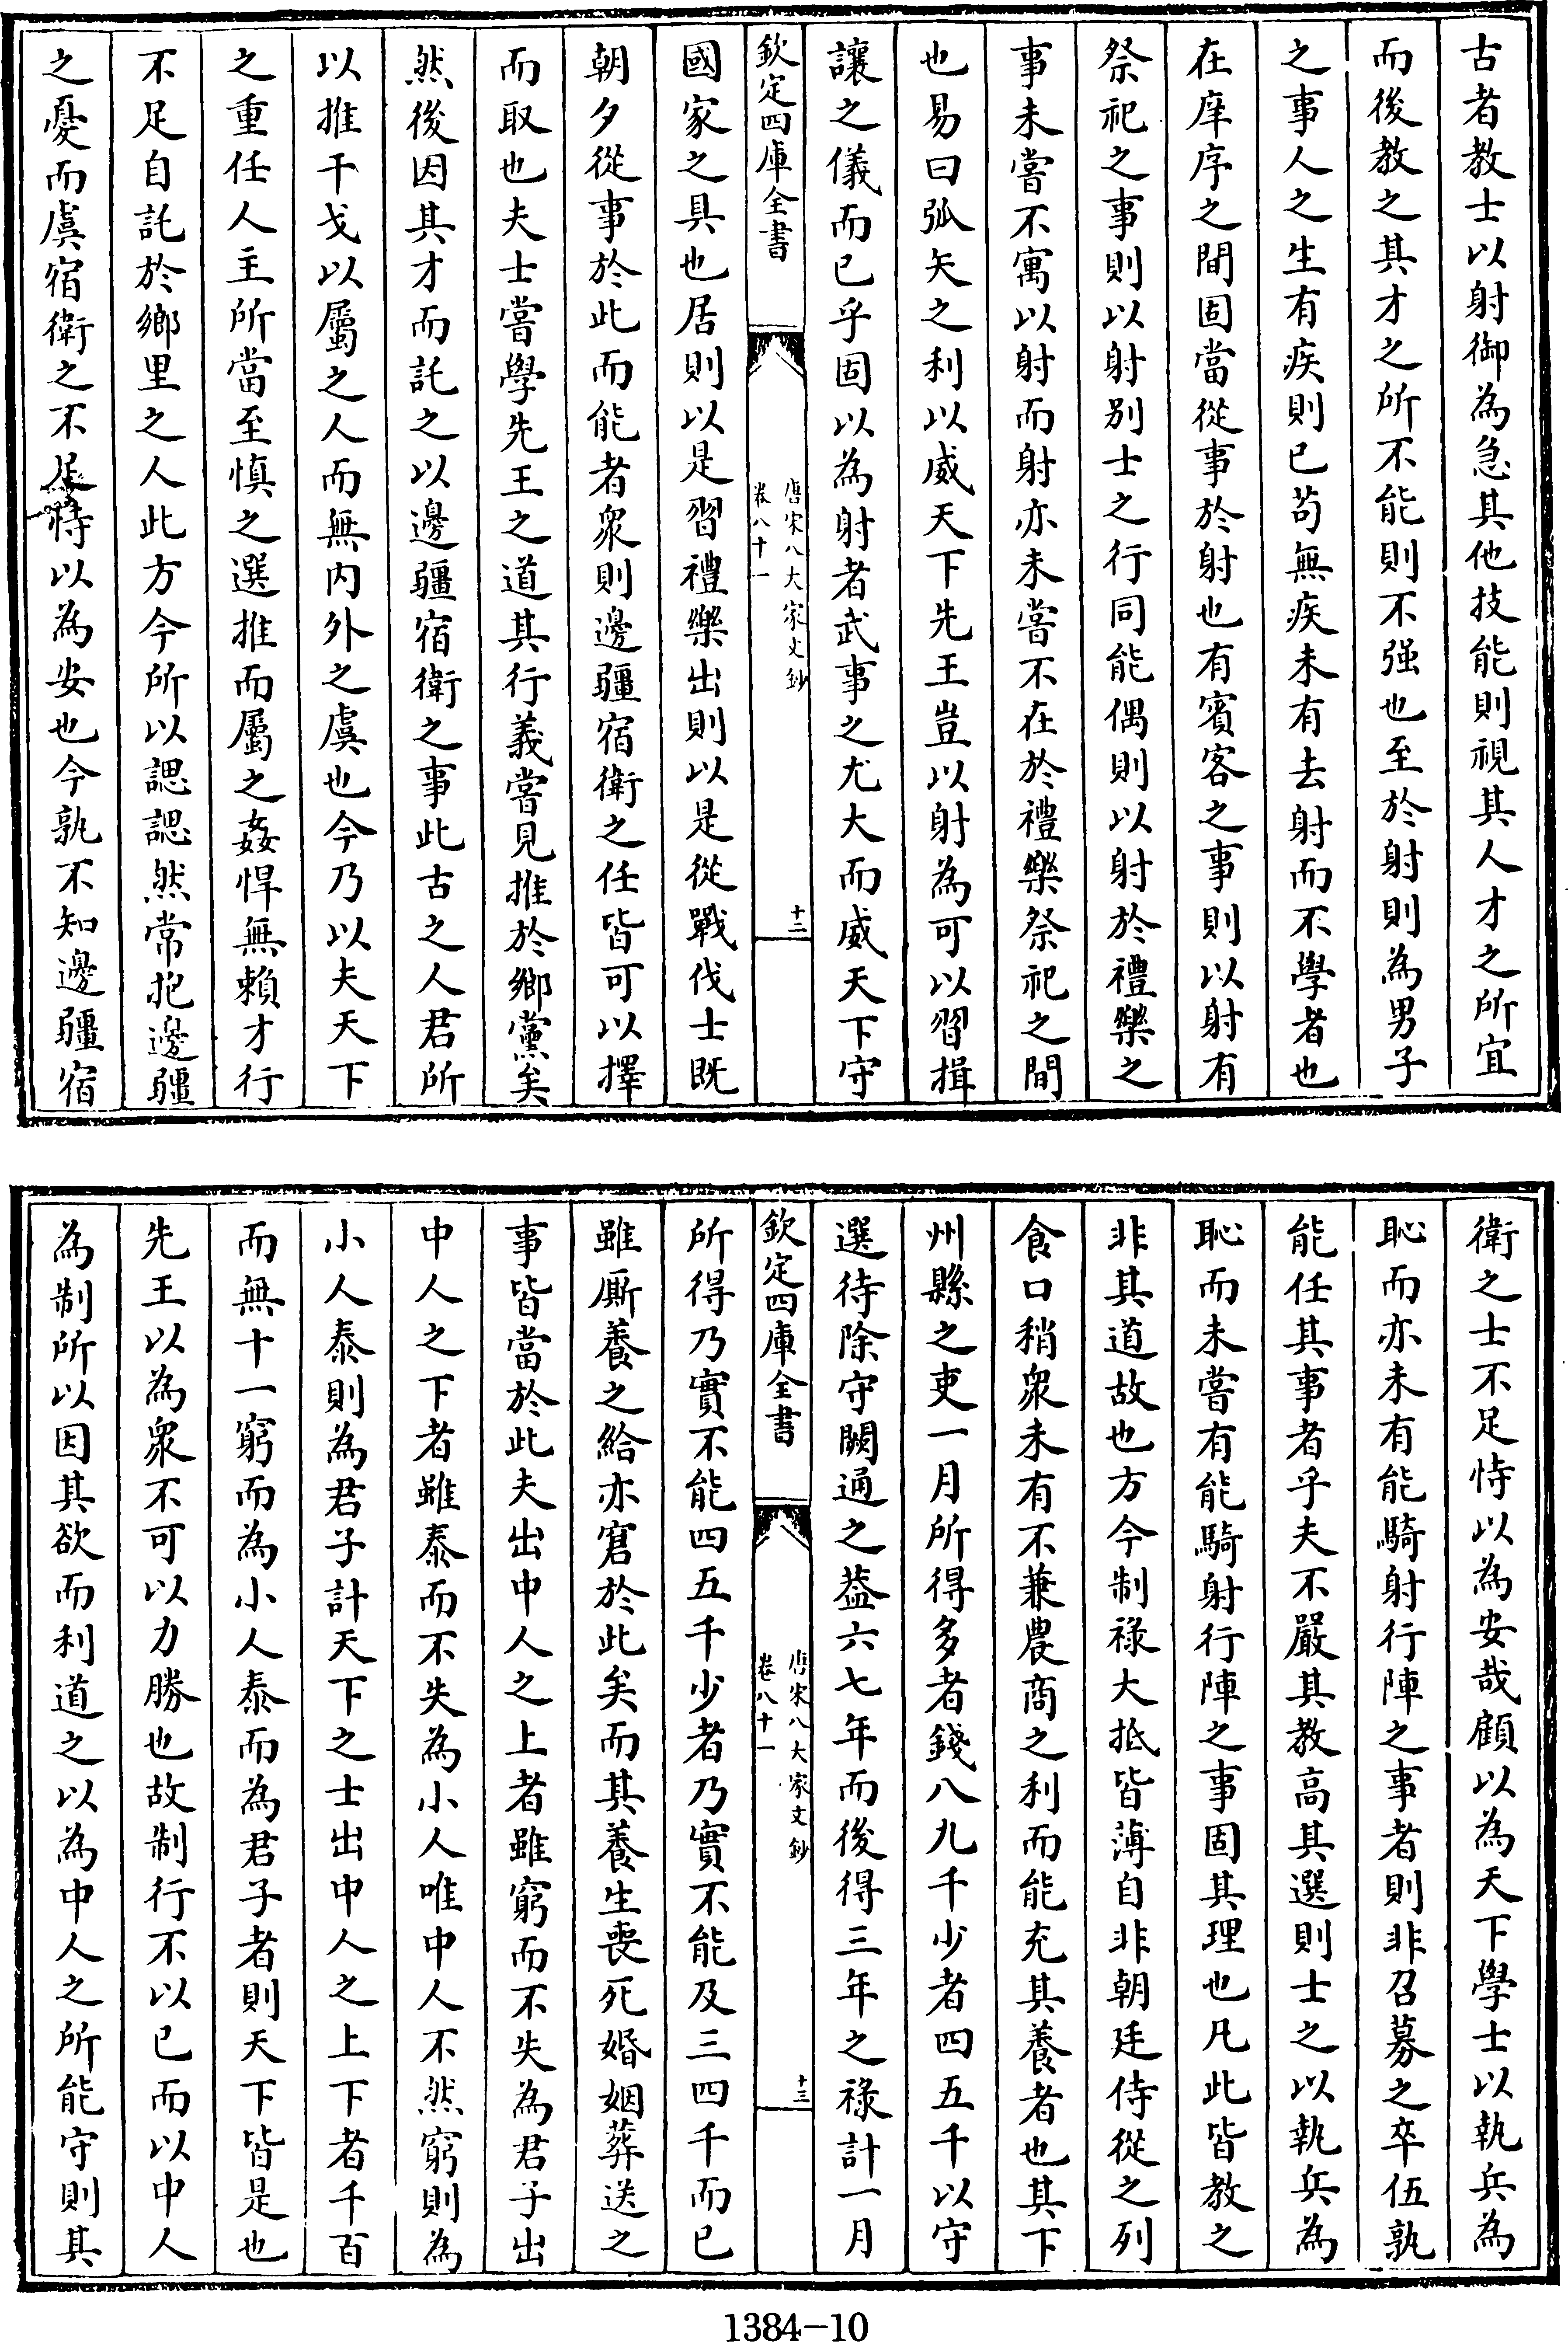 古者教士以射御為急其他技能則視其人才之所宜
而後教之其才之所不能則不强也至於射則為男子
之事人之生有疾則已苟無疾未有去射而不學者也
在庠序之間固當從事於射也有賓客之事則以射有
祭祀之事則以射别士之行同能偶則以射於禮樂之
事未嘗不寓以射而射亦未嘗不在於禮樂祭祀之間
也易曰弧矢之利以威天下先王豈以射為可以習揖
讓之儀而已乎固以為射者武事之尤大而威天下守
欽定四庫全書
唐宋八大家文鈔
卷八十一
十二
國家之具也居則以是習禮樂出則以是從戰伐士既
朝夕從事於此而能者衆則邊疆宿衛之任皆可以擇
而取也夫士嘗學先王之道其行義嘗見推於鄉黨矣
然後因其才而託之以邊疆宿衛之事此古之人君所
以推干戈以屬之人而無内外之虞也今乃以夫天下
之重任人主所當至慎之選推而屬之姦悍無賴才行
不足自託於鄉里之人此方今所以諰諰然常抱邊疆
之憂而虞宿衛之不足恃以為安也今孰不知邊疆宿
衛之士不足恃以為安哉顧以為天下學士以執兵為
恥而亦未有能騎射行陣之事者則非召募之卒伍孰
能任其事者乎夫不嚴其教高其選則士之以執兵為
恥而未嘗有能騎射行陣之事固其理也凡此皆教之
非其道故也方今制禄大抵皆薄自非朝廷侍從之列
食口稍衆未有不兼農商之利而能充其養者也其下
州縣之吏一月所得多者錢八九千少者四五千以守
選待除守闕通之葢六七年而後得三年之禄計一月
欽定四庫全書
唐宋八大家文鈔
卷八十一
十三
所得乃實不能四五千少者乃實不能及三四千而已
雖厮養之給亦窘於此矣而其養生喪死婚姻葬送之
事皆當於此夫出中人之上者雖窮而不失為君子出
中人之下者雖泰而不失為小人唯中人不然窮則為
小人泰則為君子計天下之士出中人之上下者千百
而無十一窮而為小人泰而為君子者則天下皆是也
先王以為衆不可以力勝也故制行不以已而以中人
為制所以因其欲而利道之以為中人之所能守則其
1384-10